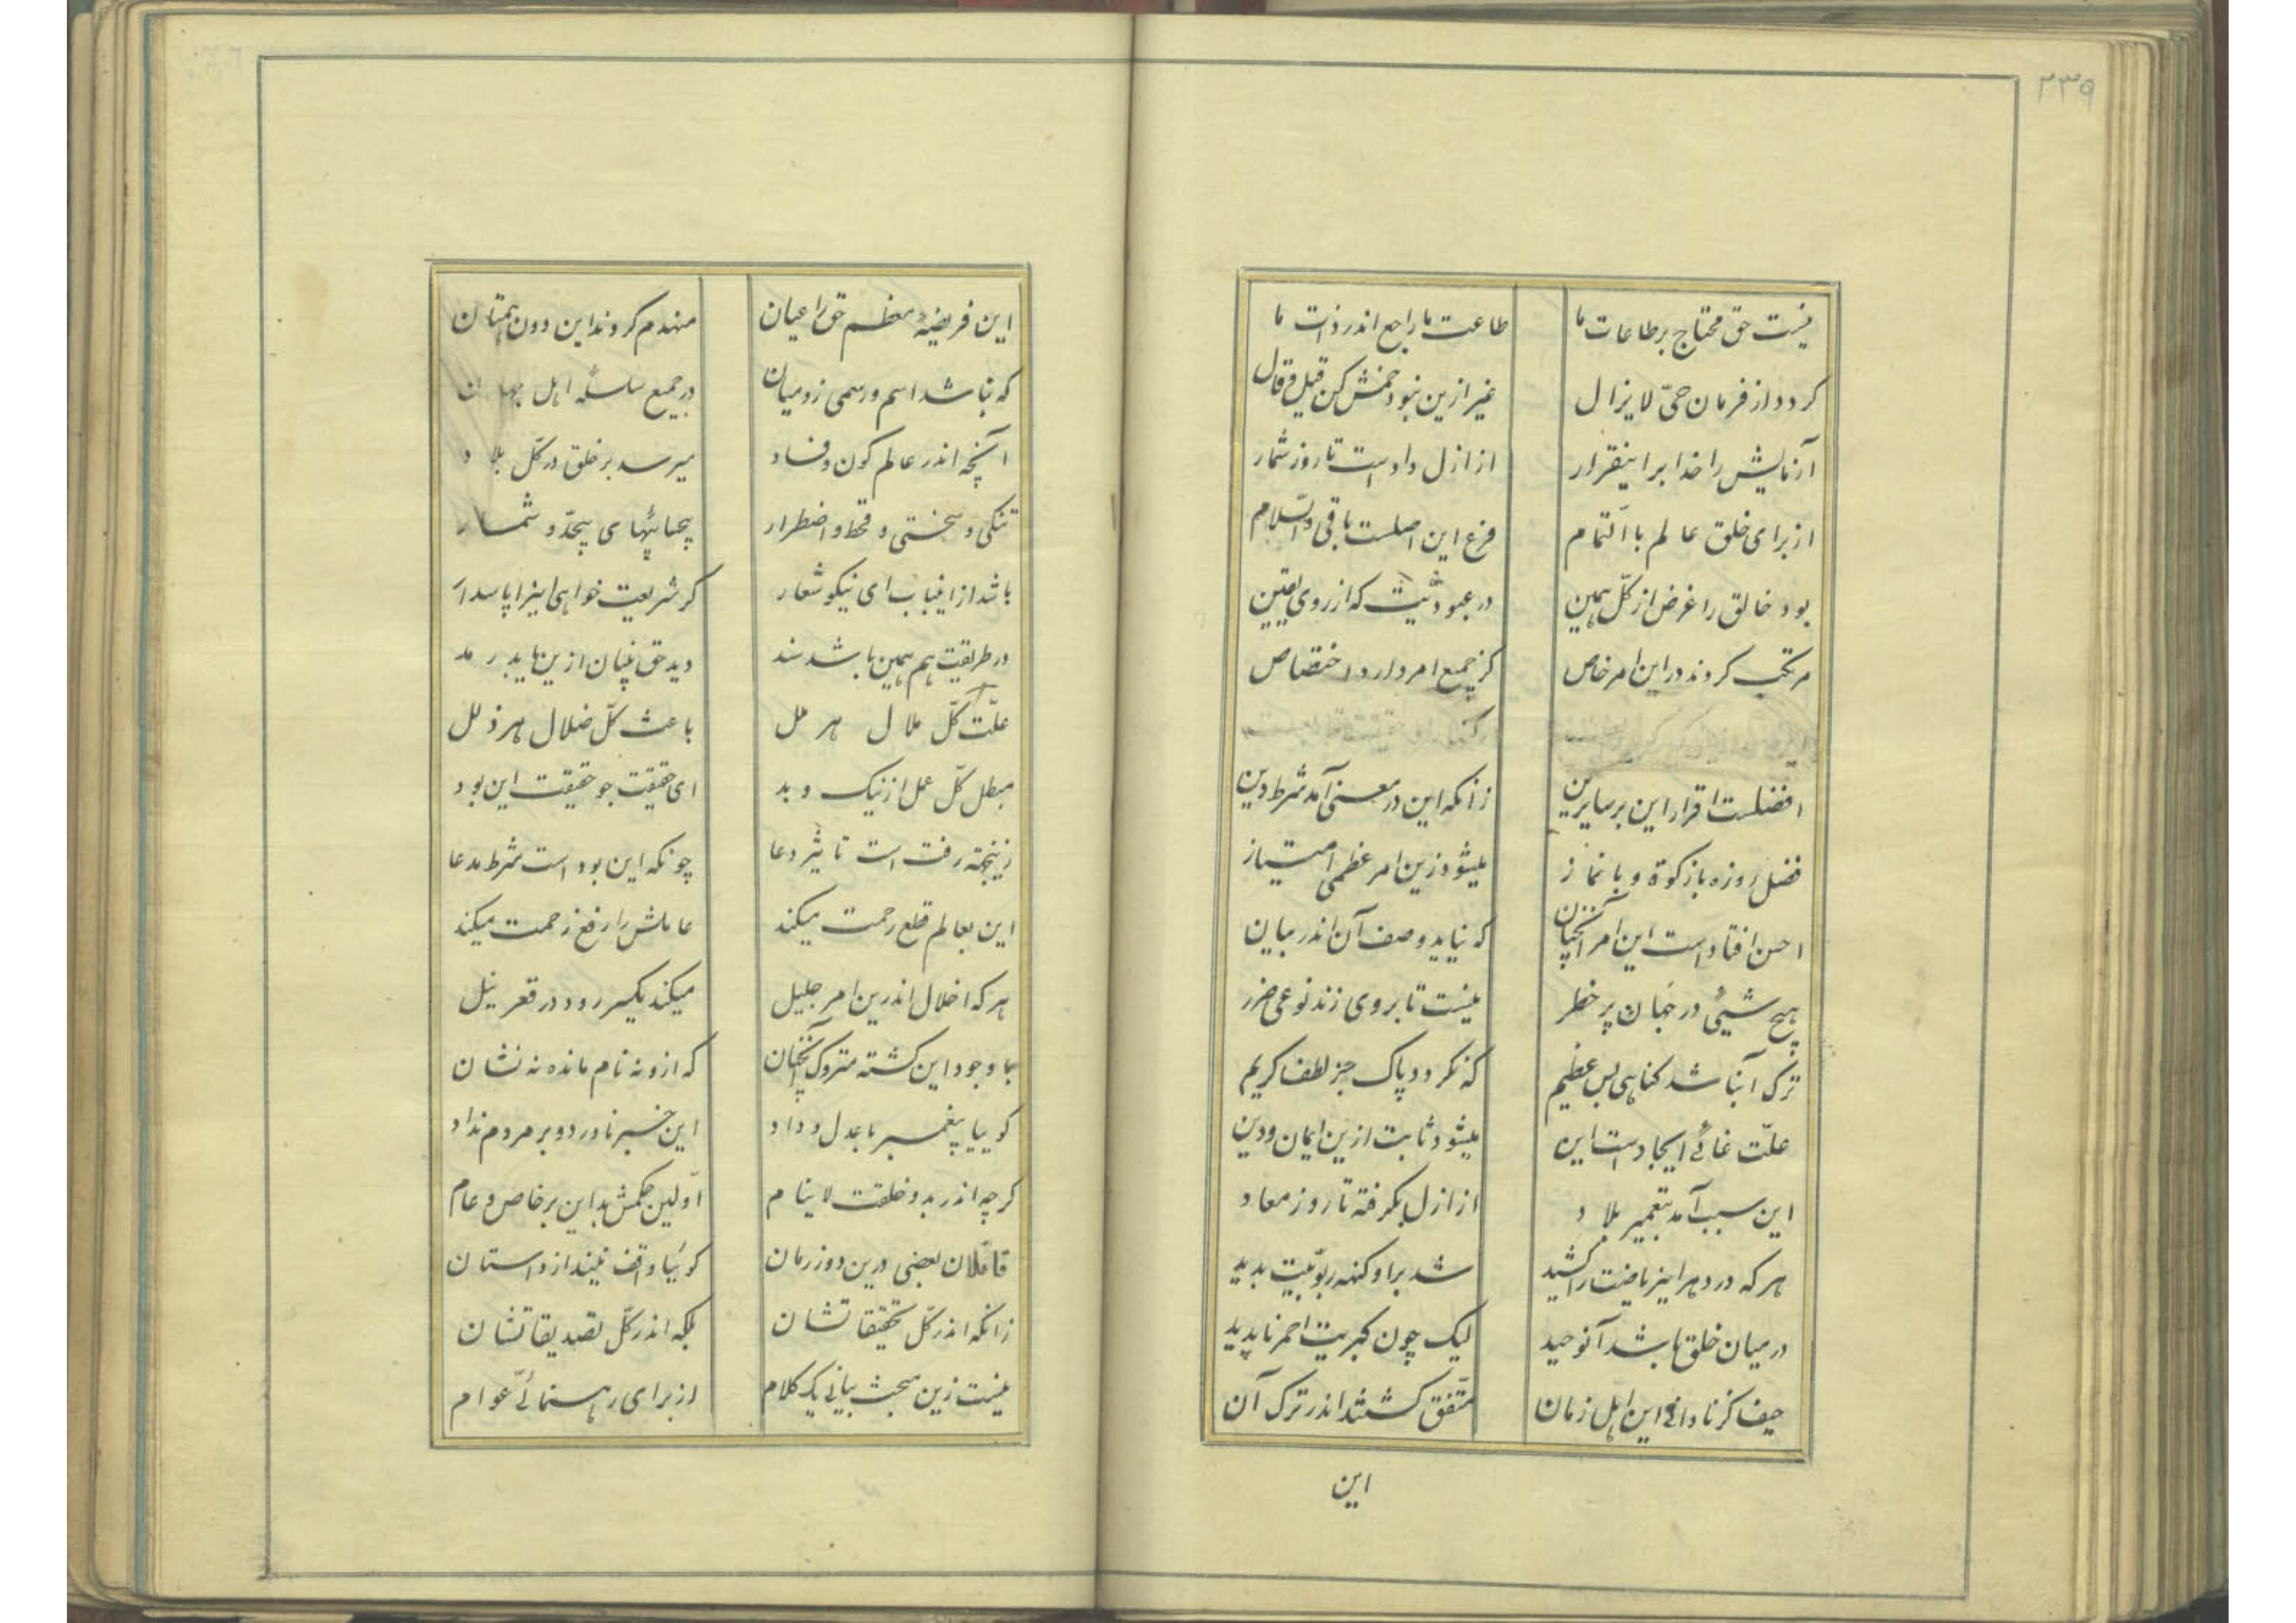 ۲۳۹
نیست حق محتاج بر طاعات ما طاعت ما راجع اندر ذات ما
کردد از فرمان حیّ لا یزال غیر ازین نبود خمش کن قیل و قال
آزمایش را خدا بر اینقرار از ازل دادست تا روز شمار
از برای خلق عالم باالتمام فرع این اصلست باقی والسّلام
بود خالق را غرض از کلّ همین در عبودیّت که از روی یقین
مرتکب کردند در این امر خاص کز جمیع امر دارد اختصاص
افضلست اقرار این بر سایرین زانکه این در معنی آمد شرط دین
فضل روزه با زکوة و با نماز میشود زین امر عظمی امتیاز
احسن افتادست این امر آنچنان که نیاید وصف آن اندر بیان
هیچ شیئی در جهان پر خطر نیست تا بروی زند نوعی ضرر
ترک آن باشد کناهی بس عظیم که نکردد پاک جز لطف کریم
علّت غائی ایجادست این میشود ثابت ازین ایمان و دین
این سبب آمد بتعمیر بلاد از ازل بگرفته تا روز معاد
هر که در دهر این ریاضت را کشید شد براو کنهه ربوبیّت بدید
در میان خلق باشد آنوحید لیک چون کبریت احمر ناپدید
حیف کز نادانی این اهل زمان متّفق کشتند اندر ترک آن
این
این فریضهٔ معظم حق را عیان منهدم کردند این دون همتان
که نباشد اسم و رسمی زو میان در جمیع سلسلهٔ اهل جهان
آنچه اندر عالم کون و فساد میرسد بر خلق در کلّ بلاد
تنکی و سختی و قحط و اضطرار بیحیائیهای بیحدّ و شمار
باشد از اینباب ای نیکو شعار کر شریعت خواهی اینرا پاسدار
در طریقت هم همین باشد سند دید حق بنیان ازین باید رمد
علّت کلّ ملال هر ملل باعث کلّ ضلال هر ذلل
مبطل کلّ عمل از نیک و بد ای حقیقت جو حقیقت این بود
زینجهته رفت است تاثیر دعا چونکه این بود است شرط مدعا
این بعالم قلع رحمت میکند عاملش را رفع زحمت میکند
هر که اخلال اندرین امر جلیل میکند یکسر رود در قعر نیل
با وجود این کشته متروک آنچنان که ازو نه نام مانده نه نشان
کوییا پیغمبر با عدل و داد این خبر ناورد و بر مردم نداد
کرچه اندر بدو خلقت لاینام اوّلین حکمش بد این بر خاص و عام
قائلان بعضی درین دور زمان کوئیا واقف نیند از داستان
زانکه اندر کلّ تحقیقاتشان بلکه اندر کلّ تصدیقاتشان
نیست زین مبحث بیانی یک کلام از برای رهنمائیّ عوام